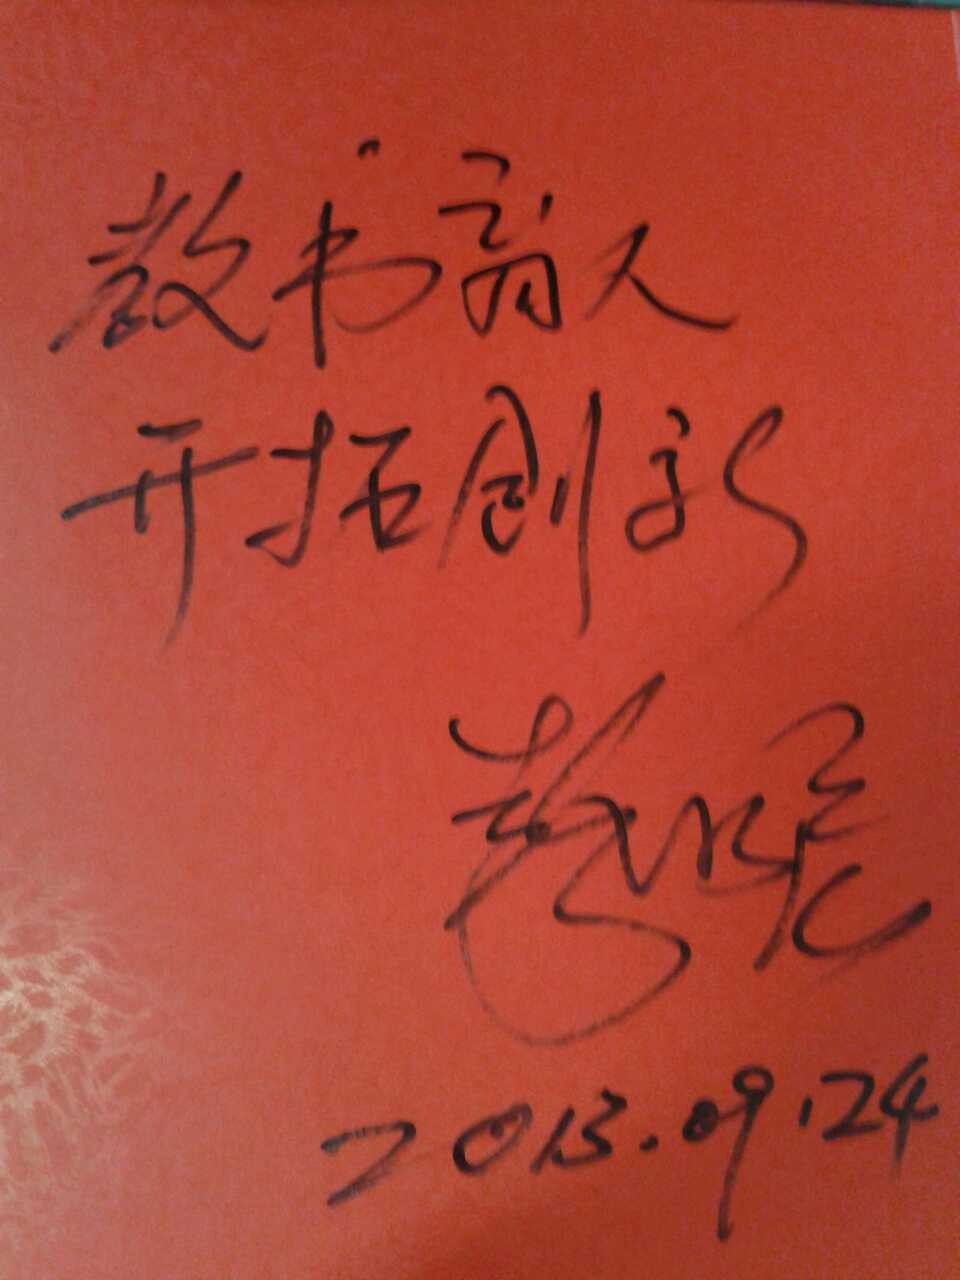 教书育人
开拓创新
2013.09.24